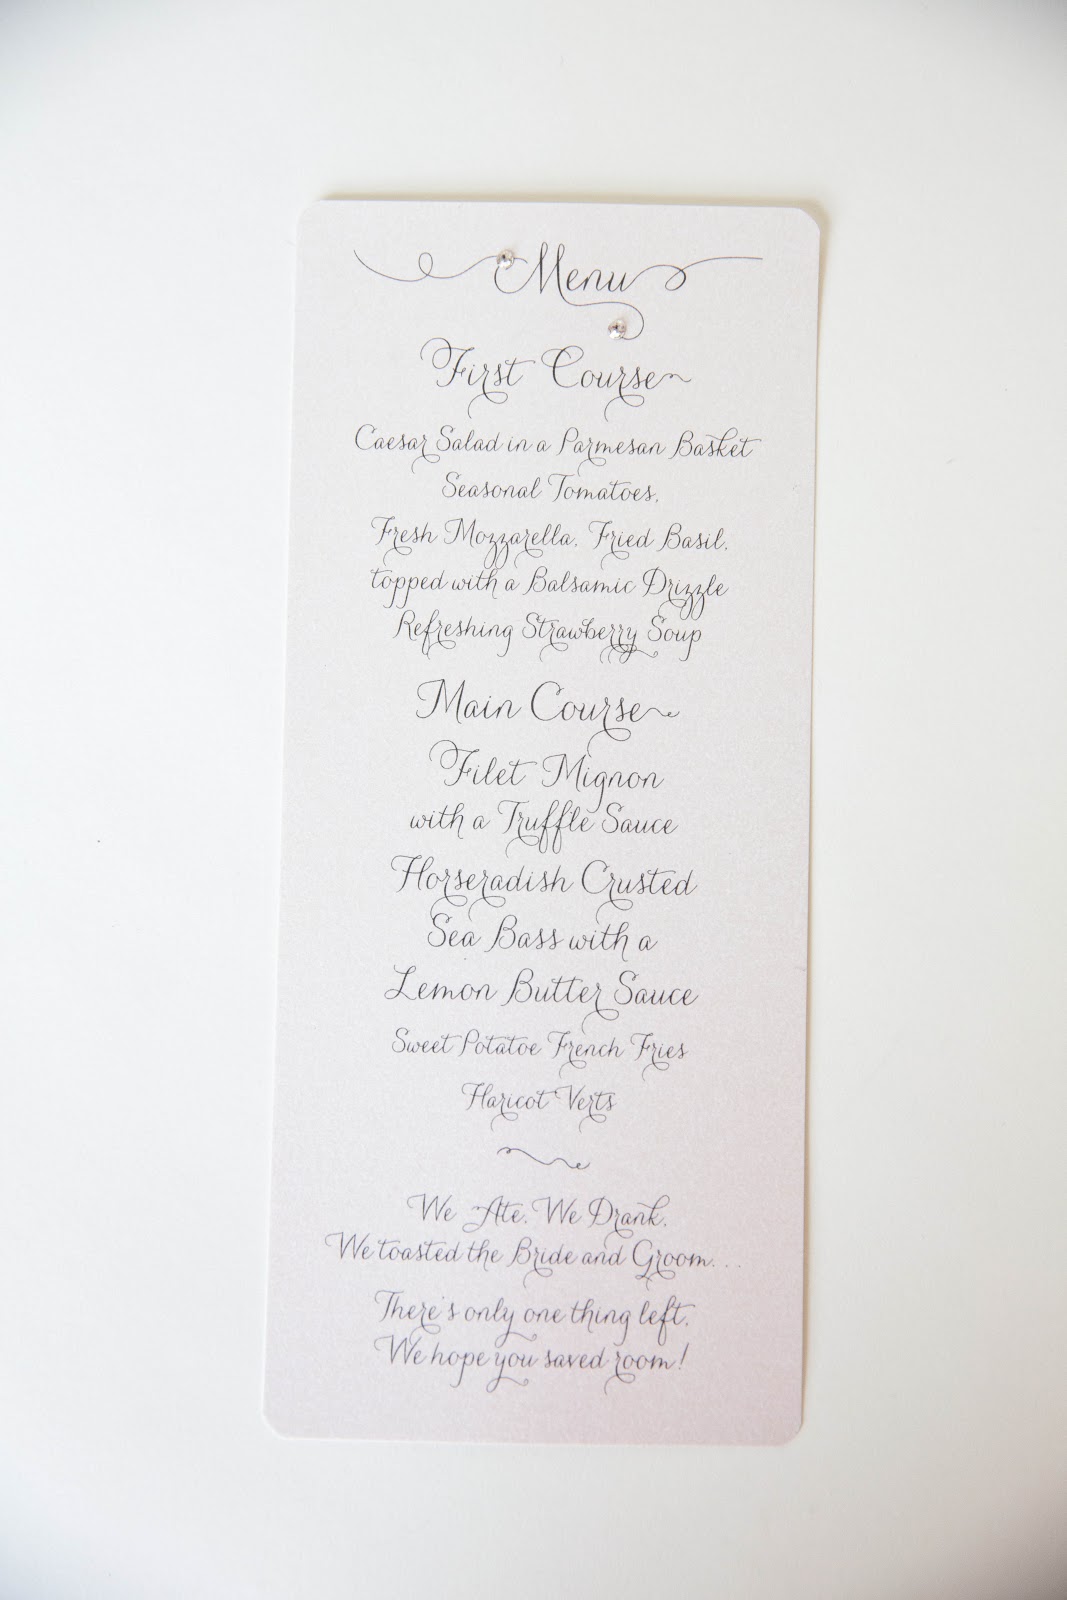 Menu
First Course
Caesar Salad in a Parmesan Basket
Seasonal Tomatoes,
Fresh Mozzarella, Fried Basil,
topped with a Balsamic Drizzle
Refreshing Strawberry Soup
Main Course
Filet Mignon
with a Truffle Sauce
Horseradish Crusted
Sea Bass with a
Lemon Butter Sauce
Sweet Potatoe French Fries
Haricot Verts
We Ate, We Drank,
We toasted the Bride and Groom...
There's only one thing left,
We hope you saved room!